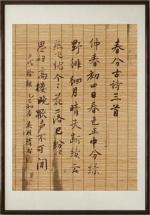 春分古诗三首
仲春初四日春色正中分绿
野徘徊月晴天断续云
燕飞犹个个花落已纷纷
思妇高楼晚歌声不可闻